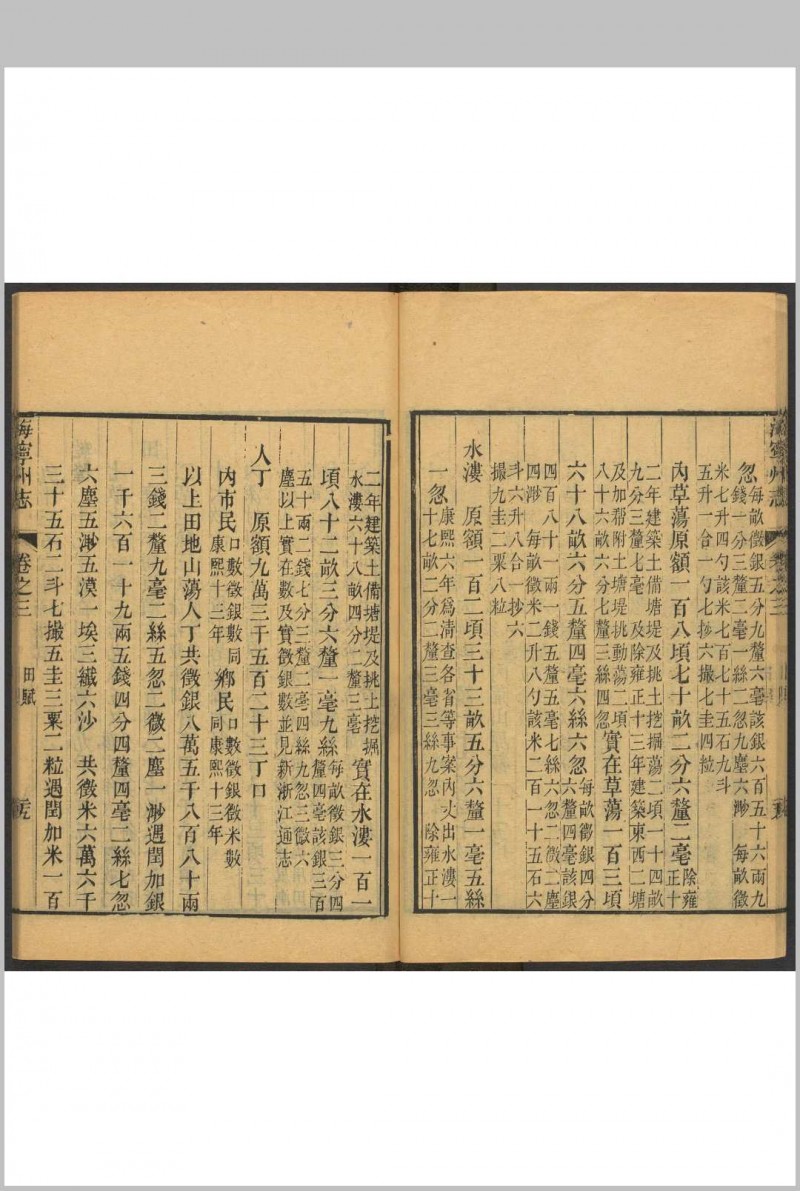 忽每畝徵銀五分九釐六毫該銀六百五十六兩九
錢一分三釐二毫一絲二忽九塵六渺 每畝徵
米七升四勺該米七百七十五石九斗
五升一合一勺七抄六撮七圭四粒
內草蕩原額一百八頃七十畝二分六釐二毫除雍正十
二年建築土備塘堤及挑土挖掘蕩二頃一十四畝
九分三釐七毫 及除雍正十三年建築東西二塘
及加幫附土塘堤挑動蕩二頃
八十六畝六分七釐三絲四忽實在草蕩一百三頃
六十八畝六分五釐四毫六絲六忽每畝徵銀四分
六釐四毫該銀
四百八十一兩一錢五釐五毫七絲六忽二微二塵
四渺 每畝徵米二升八勺該米二百一十五石六
斗六升八合一抄六
撮九圭二粟八粒
水漊 原額一百二頃三十三畝五分六釐一毫五絲
一忽康熙六年爲清查各省等事案內火出水漊一
十七畝二分二釐三毫三絲九忽 除雍正十
二年建築土備塘堤及挑土挖掘
水漊六十八畝四分二釐三毫實在水漊一百一
頃八十二畝三分六釐一毫九絲每畝徵銀三分四
釐四毫該銀三百
五十兩二錢七分三釐二毫四絲九忽三微六
塵以上實在數及實徵銀數並見新浙江通志
人丁 原額九萬三千五百二十三丁口
內市民口數徵銀數同
康熙十三年 鄉民口數徵銀徵米數
同康熙十三年
以上田地山蕩人丁共徵銀八萬五千八百八十兩
三錢二釐九毫二絲五忽二微二塵一渺遇閏加銀
一千六百一十九兩五錢四分四釐四毫二絲七忽
六塵五渺五漠一埃三纖六沙 共徵米六萬六千
三十五石二斗七撮五圭三粟二粒遇閏加米一百
海寧州志 卷之三 田賦